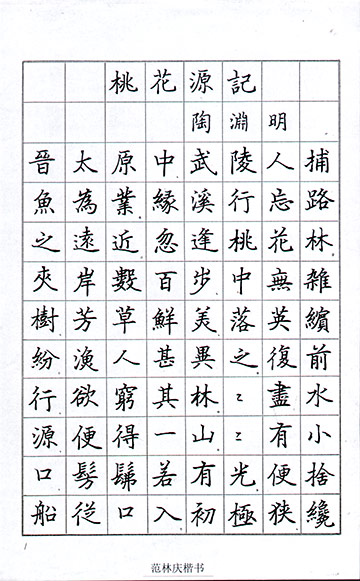 桃花源記
陶淵明
晉太原中武陵人捕
魚為業緣溪行忘路
之遠近忽逢桃花林
夾岸數百步中無雜
樹芳草鮮美落英繽
紛漁人甚異之復前
行欲窮其林〻盡水
源便得一山〻有小
口髣髴若有光便捨
船從口入初極狹纔
范林庆楷书